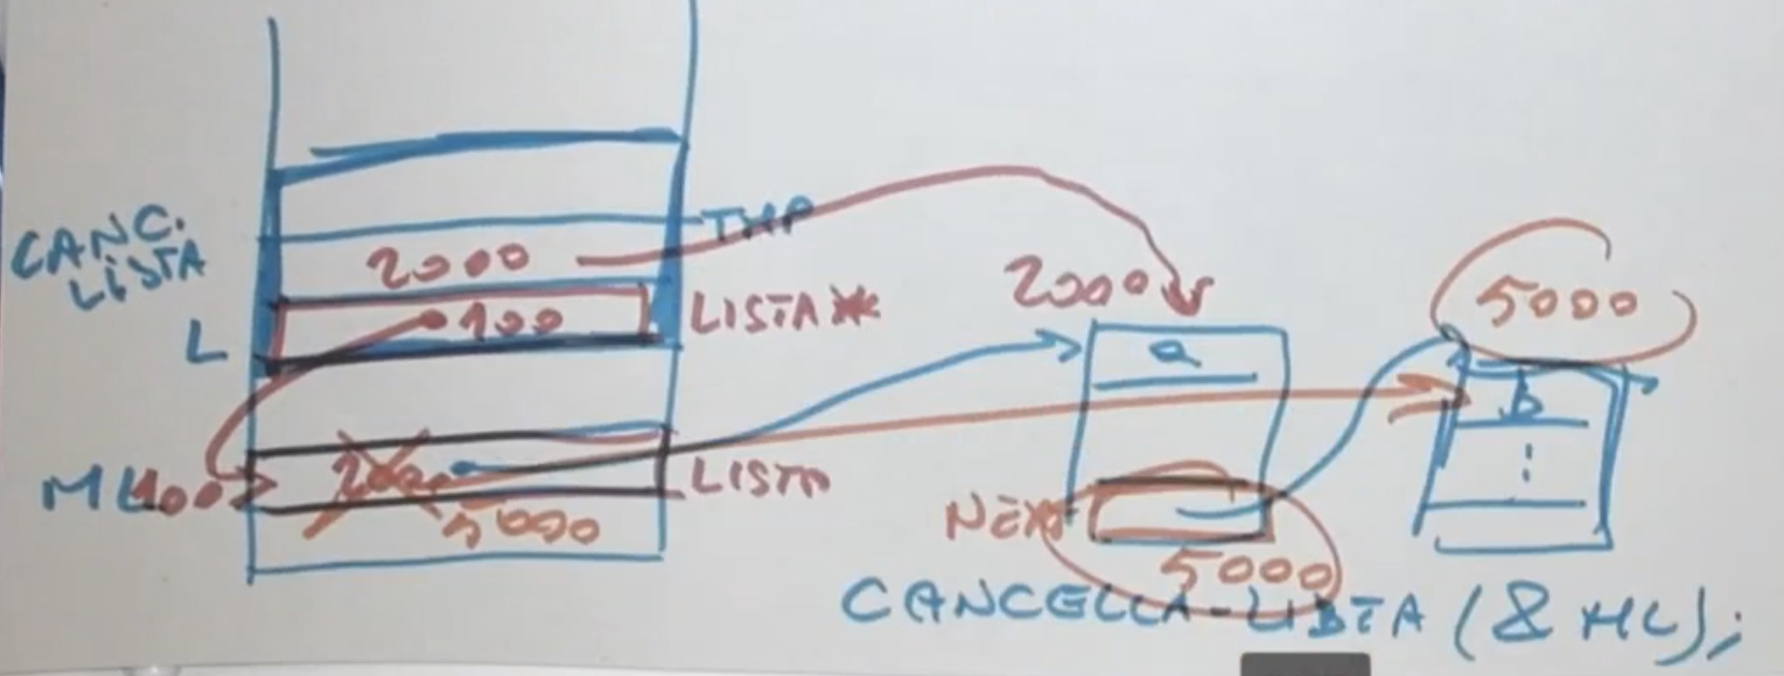 CANC. LISTA
TMP
2000
L
100
LISTA*
ML
100
2000
5000
LISTA
2000
a
NEXT
5000
5000
b
CANCELLA-LISTA (& ML);